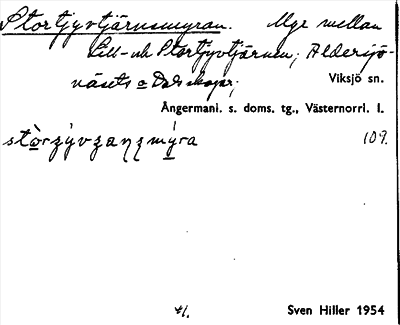 Stortjyvtjärnsmyran. Myr mellan
Lill- och Stortjyvtjärnen; Aldersjö-
näsets o Dals skogar; Viksjö sn.
Ångermanl. s. doms. tg., Västernorrl. l.
109.
41. Sven Hiller 1954